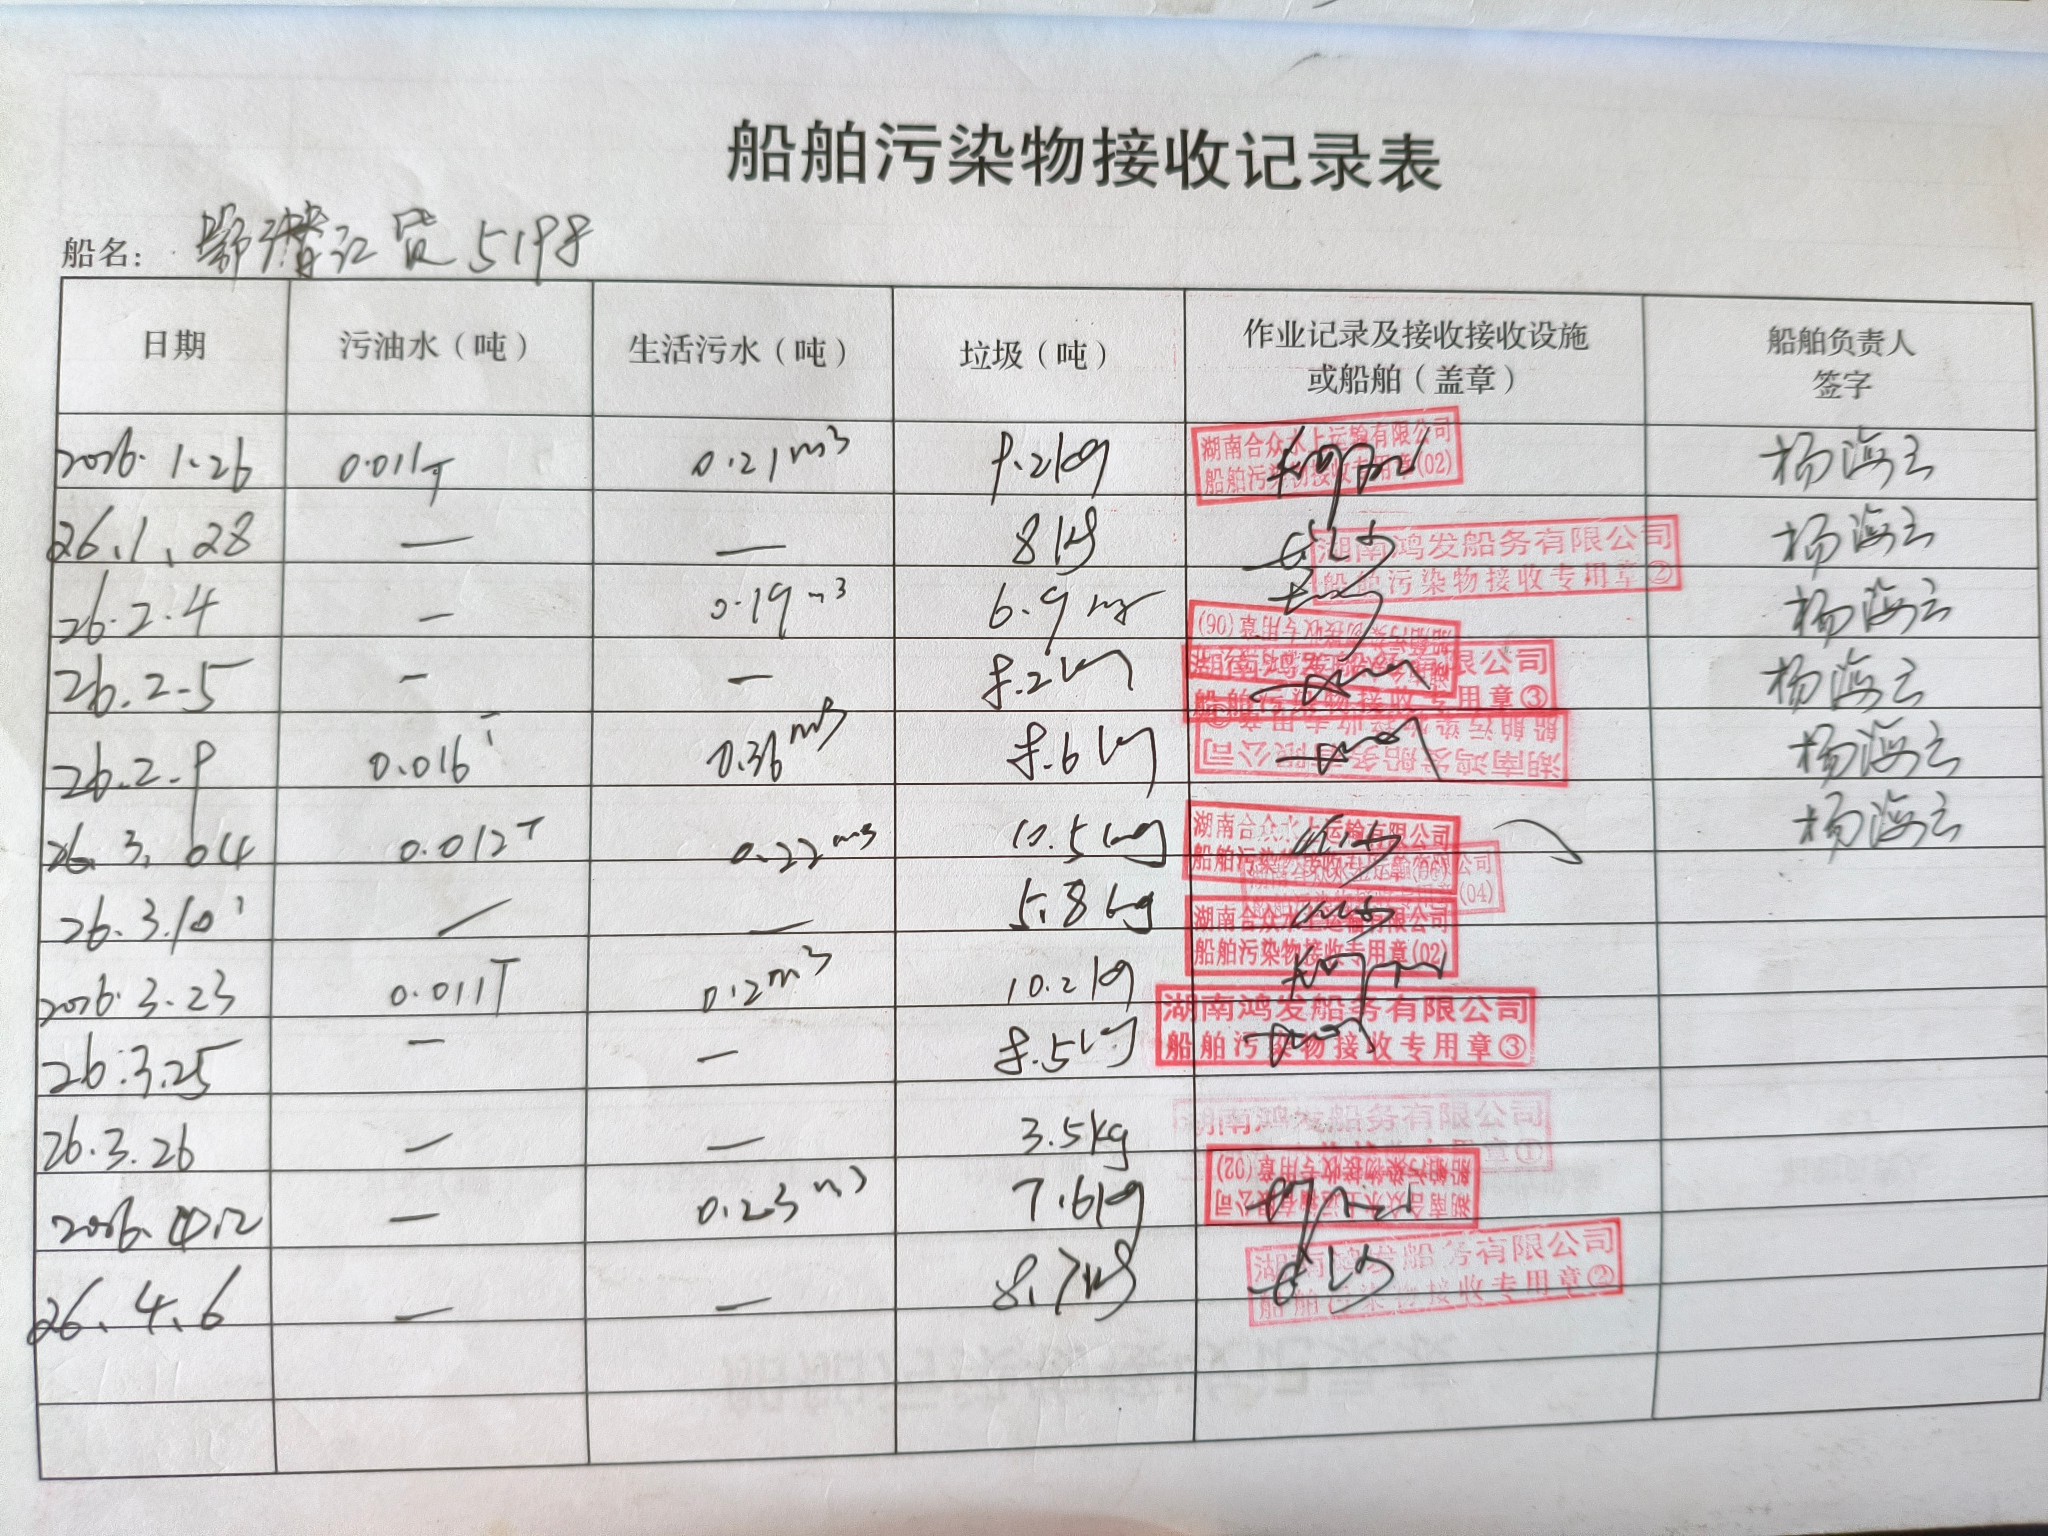 船舶污染物接收记录表
船名： 鄂潜江货5198
日期 污油水（吨） 生活污水（吨） 垃圾（吨） 作业记录及接收接收设施或船舶（盖章） 船舶负责人签字
2026.1.26 0.011T 0.21m3 9.2kg 湖南合众水上运输有限公司 船舶污染物接收专用章(02) 杨海云
26.1.28 — — 8kg 湖南鸿发船务有限公司 船舶污染物接收专用章② 杨海云
26.2.4 — 0.19m3 6.9kg 船舶污染物接收专用章(06) 杨海云
26.2.5 — — 8.2kg 湖南鸿发船务有限公司 船舶污染物接收专用章③ 杨海云
26.2.9 0.016T 0.36m3 8.6kg 湖南鸿发船务有限公司 船舶污染物接收专用章 杨海云
26.3.04 0.012T 0.22m3 10.5kg 湖南合众水上运输有限公司 船舶污染物接收专用章 杨海云
26.3.10 — — 5.8kg (04)
2026.3.23 0.011T 0.2m3 10.2kg 湖南合众水上运输有限公司 船舶污染物接收专用章(02)
26.3.25 — — 8.5kg 湖南鸿发船务有限公司 船舶污染物接收专用章③
26.3.26 — — 3.5kg 湖南鸿发船务有限公司 专用章①
2026.4.2 — 0.23m3 7.6kg 湖南合众水上运输有限公司 船舶污染物接收专用章(02)
26.4.6 — — 8.7kg 湖南鸿发船务有限公司 船舶污染物接收专用章②